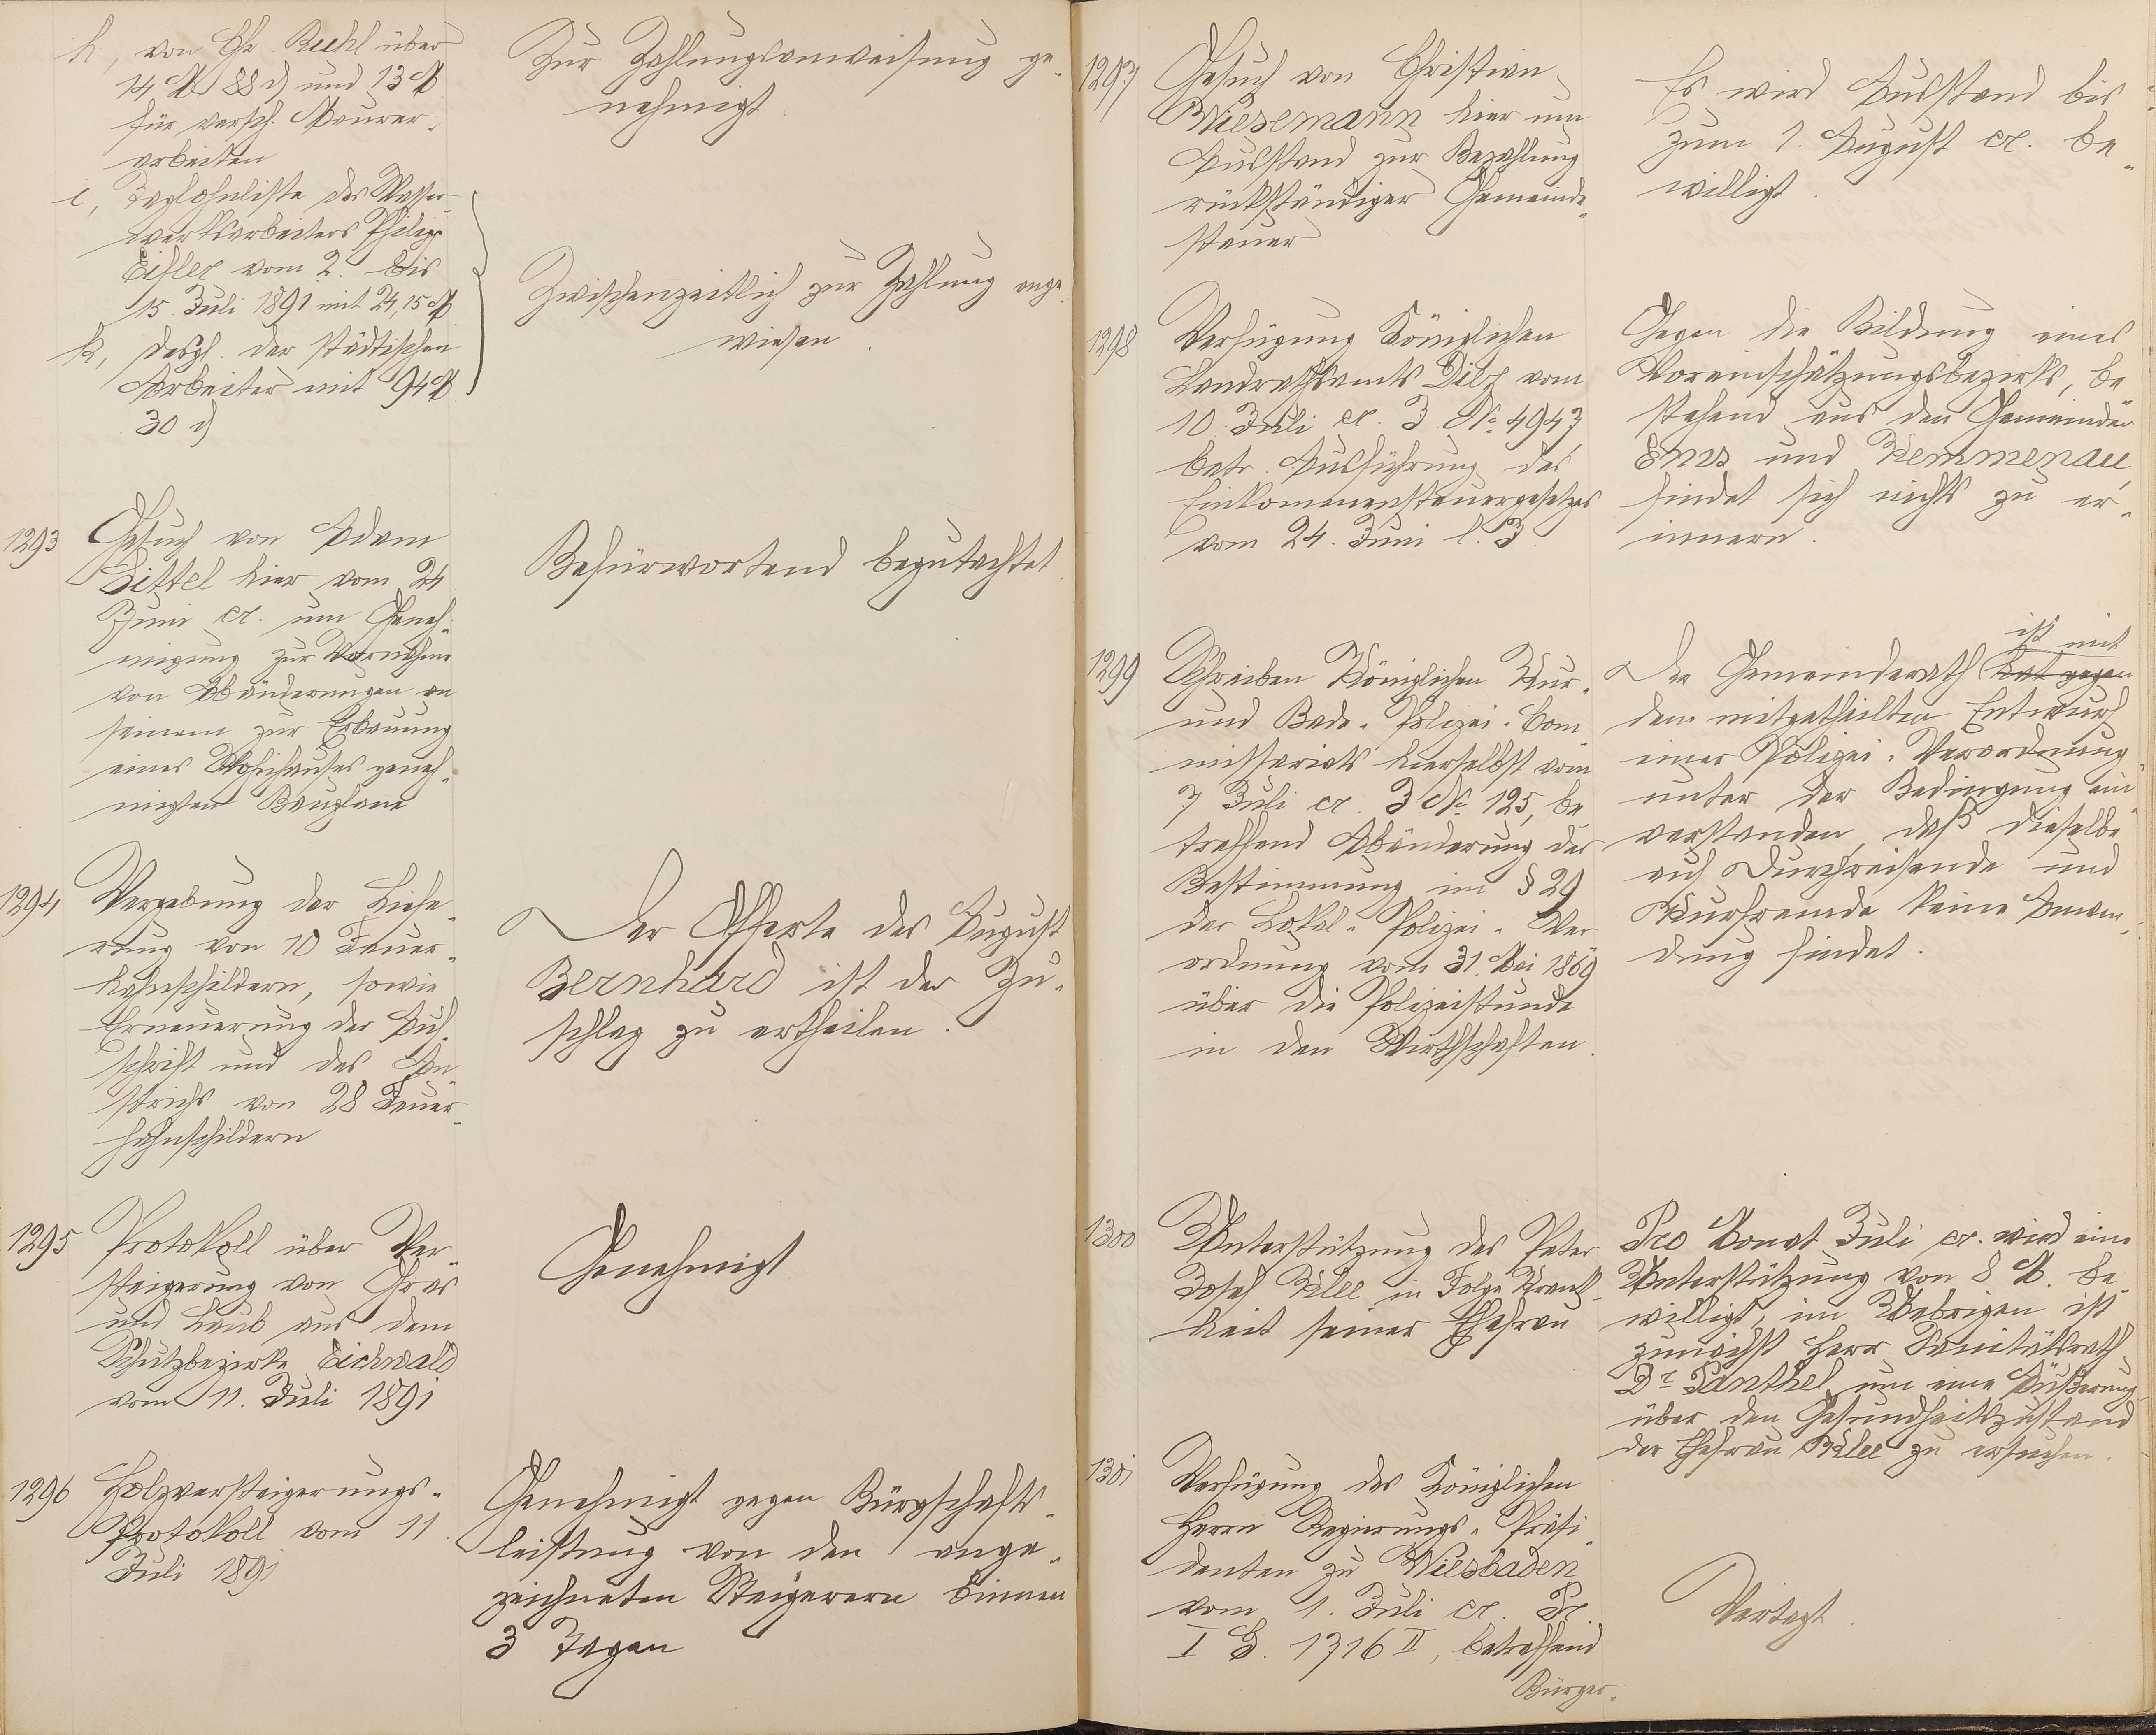 h, von Chr. Ruhl über
14 M 88 d und 13 M
für versch. Maurer-
arbeiten
Zur Zahlungsanweisung ge-
nehmigt.
i, Taglohnliste des Wasser-
werksarbeiters Philipp
Eisler vom 2. bis
15. Juli 1891 mit 24,15 M
k, desgl. der städtischen
Arbeiter mit 94 M
30 d
Zwischenzeitlich zur Zahlung ange-
wiesen.
1293
Gesuch von Adam
Sittel hier vom 24.
Juni cr. um Geneh-
migung zur Vornahme
von Abänderungen an
seinem zur Erbauung
eines Wohnhauses geneh-
migten Bauplane
Befürwortend begutachtet.
1294
Vergebung der Liefe-
rung von 10 Feuer-
hahnschildern, sowie
Erneuerung der Auf-
schrift und des An-
strichs von 28 Feuer-
hahnschildern
Der Offerte des August
Bernhard ist der Zu-
schlag zu ertheilen.
1295
Protokoll über Ver-
steigerung von Gras
und Laub aus dem
Schutzbezirke Eichwald
vom 11. Juli 1891
Genehmigt
1296
Holzversteigerungs-
Protokoll vom 11.
Juli 1891
Genehmigt gegen Bürgschafts-
leistung von den ange-
zeichneten Steigerern binnen
3 Tagen
1297
Gesuch von Christian
Wiesemann hier um
Ausstand zur Bezahlung
rückständiger Gemeinde-
steuer
Es wird Ausstand bis
zum 1. August cr. be-
willigt.
1298
Verfügung Königlichen
Landrathsamts Diez vom
10. Juli cr. J. No. 4943,
betr. Ausführung des
Einkommensteuergesetzes
vom 24. Juni l. J.
Gegen die Bildung eines
Voreinschätzungsbezirks, be-
stehend aus den Gemeinden
Ems und Kemmenau
findet sich nichts zu er-
innern.
1299
Schreiben Königlichen Kur-
und Bade-Polizei-Com-
missariats hierselbst vom
7. Juli cr. J. No. 125, be-
treffend Abänderung der
Bestimmung im § 29
der Lokal-Polizei-Ver-
ordnung vom 31. Mai 1869
über die Polizeistunde
in den Wirthschaften.
ist mit
Der Gemeinderath hat gegen
dem mitgetheilten Entwurf
einer Polizei-Verordnung
unter der Bedingung ein-
verstanden, daß dieselbe
auf Durchreisende und
Kurfremde keine Anwen-
dung findet.
1300
Unterstützung des Peter
Josef Klee in Folge Krank-
heit seiner Ehefrau
Pro Monat Juli cr. wird eine
Unterstützung von 8 M. be-
willigt, im Uebrigen ist
zunächst Herr Sanitätsrath
Dr Panthel um eine Äußerung
über den Gesundheitszustand
der Ehefrau Klee zu ersuchen.
1301
Verfügung des Königlichen
Herrn Regierungs-Präsi-
denten zu Wiesbaden
vom 1. Juli cr. Pr.
I C. 1316 II, betreffend
Bürger-
Vertagt.